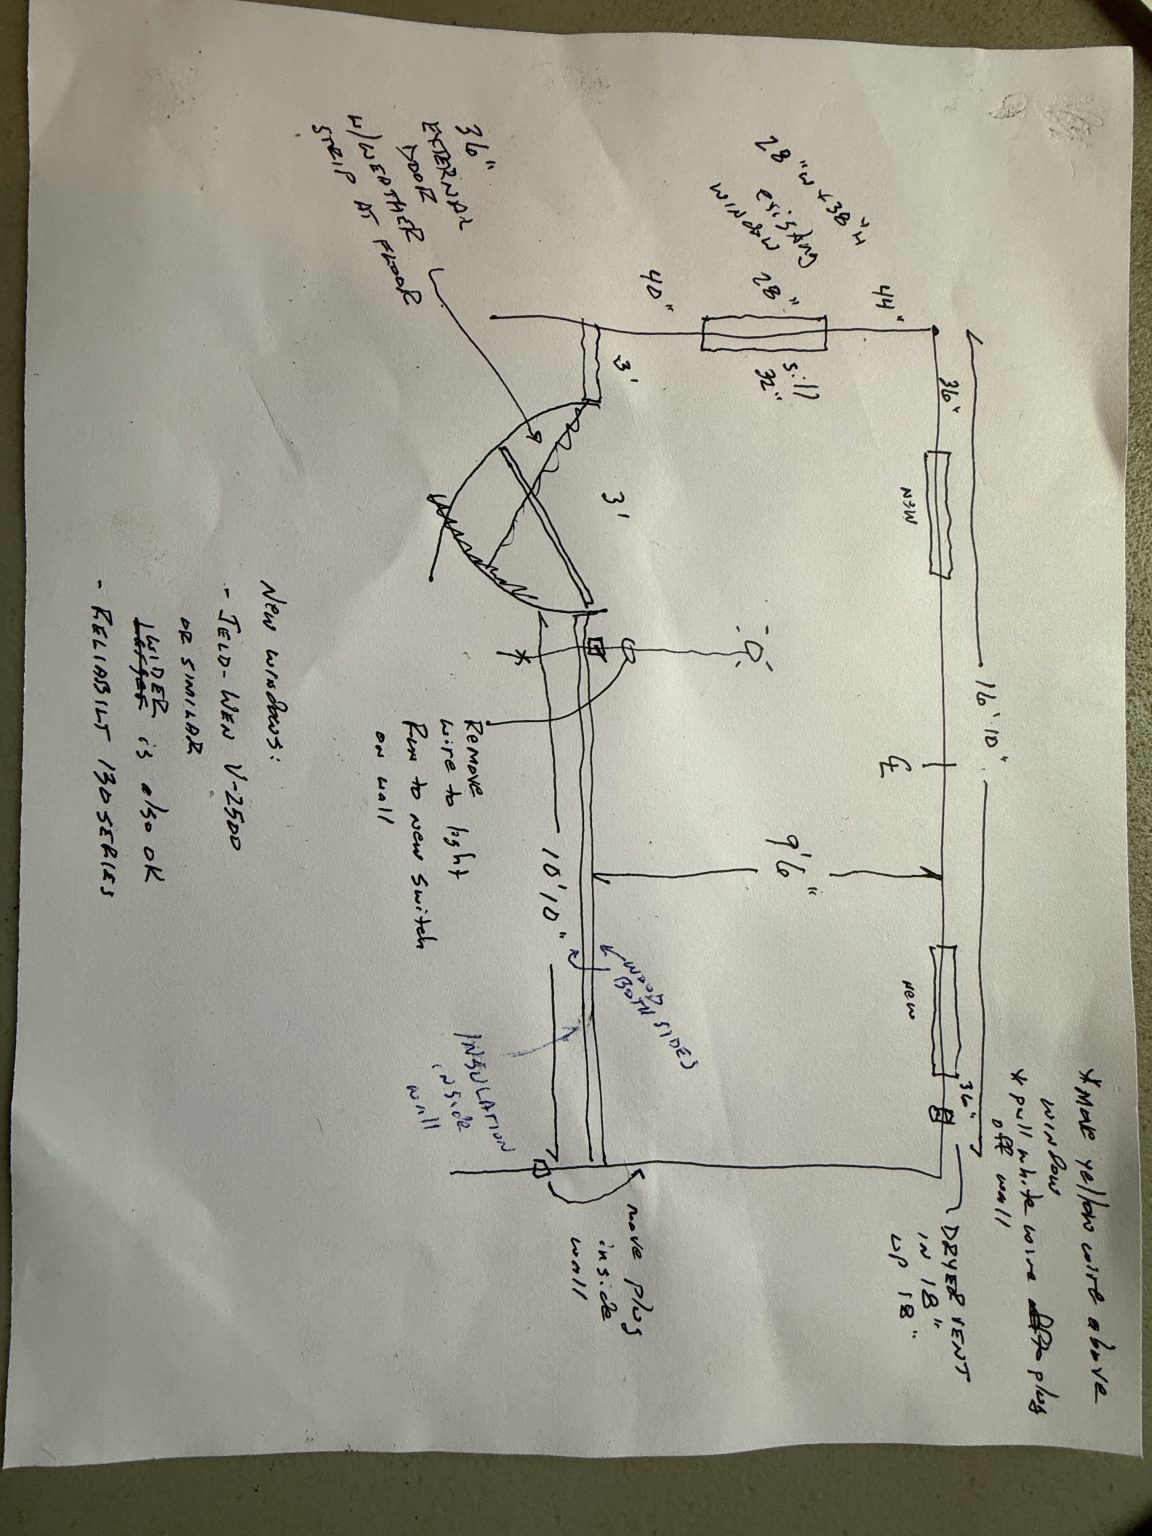 * Move yellow wire above
window
* pull white wire plug
off wall
DRYER VENT
IN 18"
UP 18"
16' 10"
36"
36"
NEW
NEW
CL
44"
28"
40"
sill
32"
28" W x 38" H
existing
window
9' 6"
3'
3'
36"
EXTERNAL
DOOR
W/WEATHER
STRIP AT FLOOR
WOOD
BOTH SIDES
10' 10"
move plug
inside
wall
INSULATION
inside
wall
Remove
wire to light
Run to new switch
on wall
New windows:
- JELD-WEN V-2500
OR SIMILAR
WIDER is also OK
- RELIABILT 130 SERIES